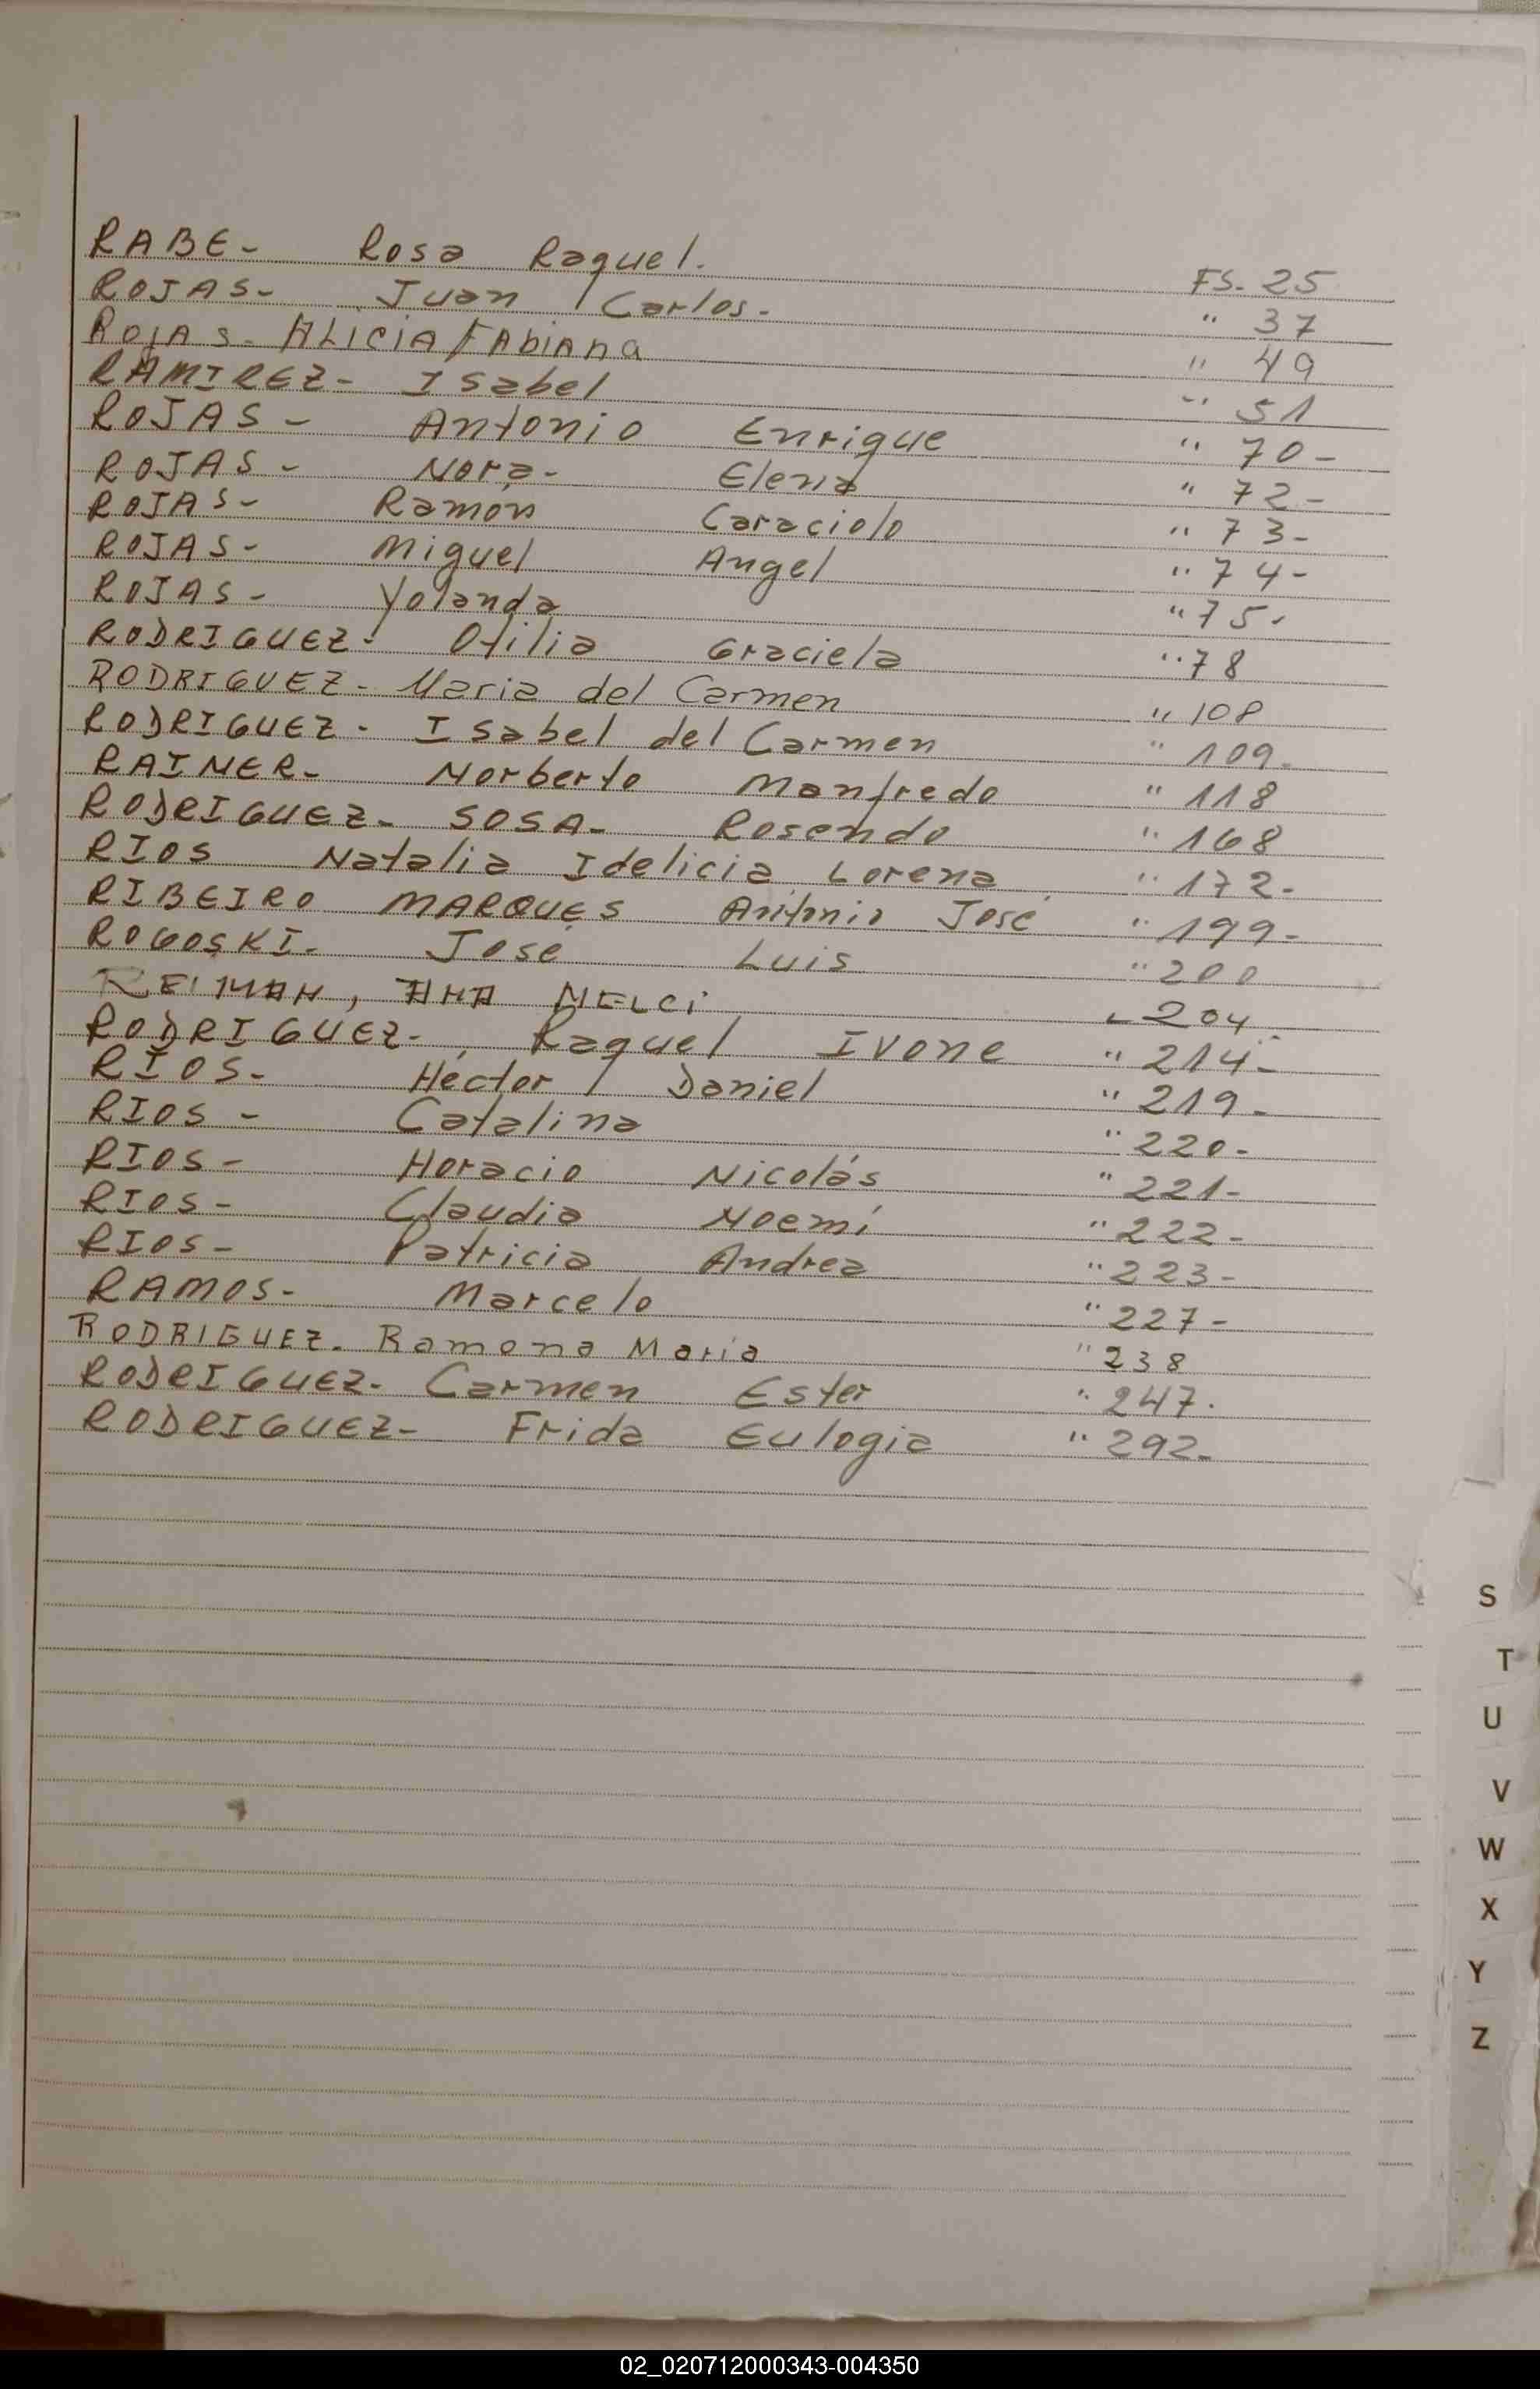 RABE- Rosa Raquel. FS. 25
ROJAS- Juan Carlos- " 37
ROJAS- ALICIA FAbiANA " 49
RAMIREZ- Isabel " 51
ROJAS- Antonio Enrique " 70-
ROJAS- Nora- Elena " 72-
ROJAS- Ramón Caraciolo " 73-
ROJAS- Miguel Angel " 74-
ROJAS- Yolanda " 75-
RODRIGUEZ- Otilia Graciela " 78
RODRIGUEZ- Maria del Carmen " 108
RODRIGUEZ- Isabel del Carmen " 109-
RAINER- Norberto Manfredo " 118
RODRIGUEZ- SOSA- Rosendo " 168
RIOS Natalia Idelicia Lorena " 172-
RIBEIRO MARQUES Antonio José " 199-
ROGOSKI- José Luis " 200
REIMAN, ANA NELCi " 204
RODRIGUEZ- Raquel Ivone " 214-
RIOS- Héctor Daniel " 219-
RIOS- Catalina " 220-
RIOS- Horacio Nicolás " 221-
RIOS- Claudia Noemí " 222-
RIOS- Patricia Andrea " 223-
RAMOS- Marcelo " 227-
RODRIGUEZ. Ramona Maria " 238
RODRIGUEZ- Carmen Ester " 247.
RODRIGUEZ- Frida Eulogia " 292-
S
T
U
V
W
X
Y
Z
02_020712000343-004350